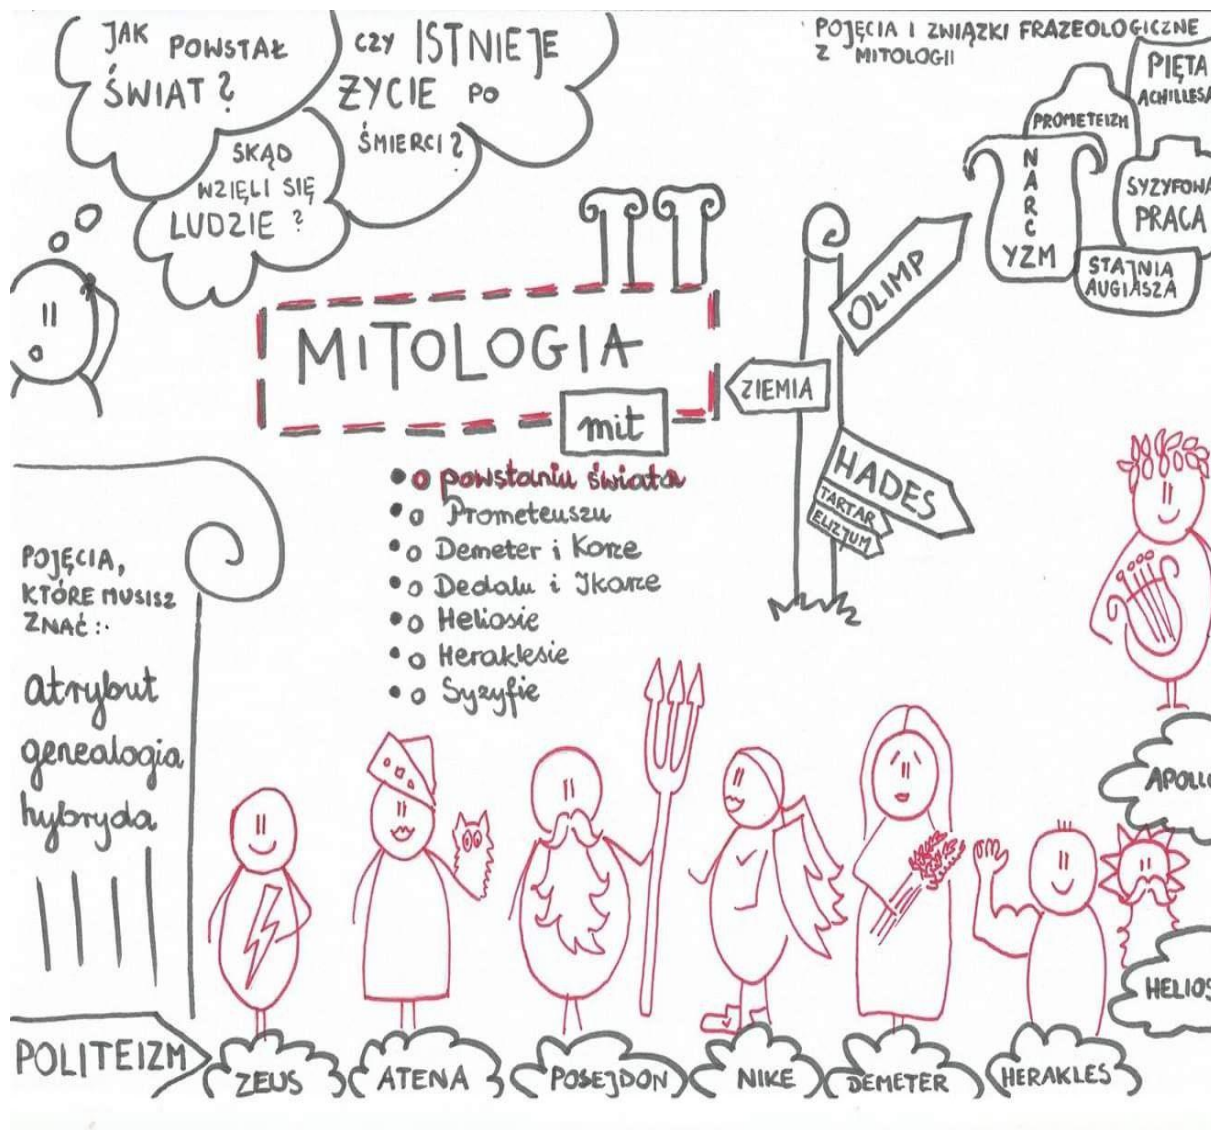 JAK POWSTAŁ
ŚWIAT?
CZY ISTNIEJE
ŻYCIE PO
ŚMIERCI?
SKĄD
WZIĘLI SIĘ
LUDZIE?
POJĘCIA I ZWIĄZKI FRAZEOLOGICZNE
Z MITOLOGII
PIĘTA
ACHILLESA
PROMETEIZM
NARCYZM
SYZYFOWA
PRACA
STAJNIA
AUGIASZA
OLIMP
ZIEMIA
HADES
TARTAR
ELIZJUM
MITOLOGIA
mit
• o powstaniu świata
• o Prometeuszu
• o Demeter i Korze
• o Dedalu i Ikarze
• o Heliosie
• o Heraklesie
• o Syzyfie
POJĘCIA,
KTÓRE MUSISZ
ZNAĆ:
atrybut
genealogia
hybryda
POLITEIZM
ZEUS
ATENA
POSEJDON
NIKE
DEMETER
HERAKLES
APOLLO
HELIOS